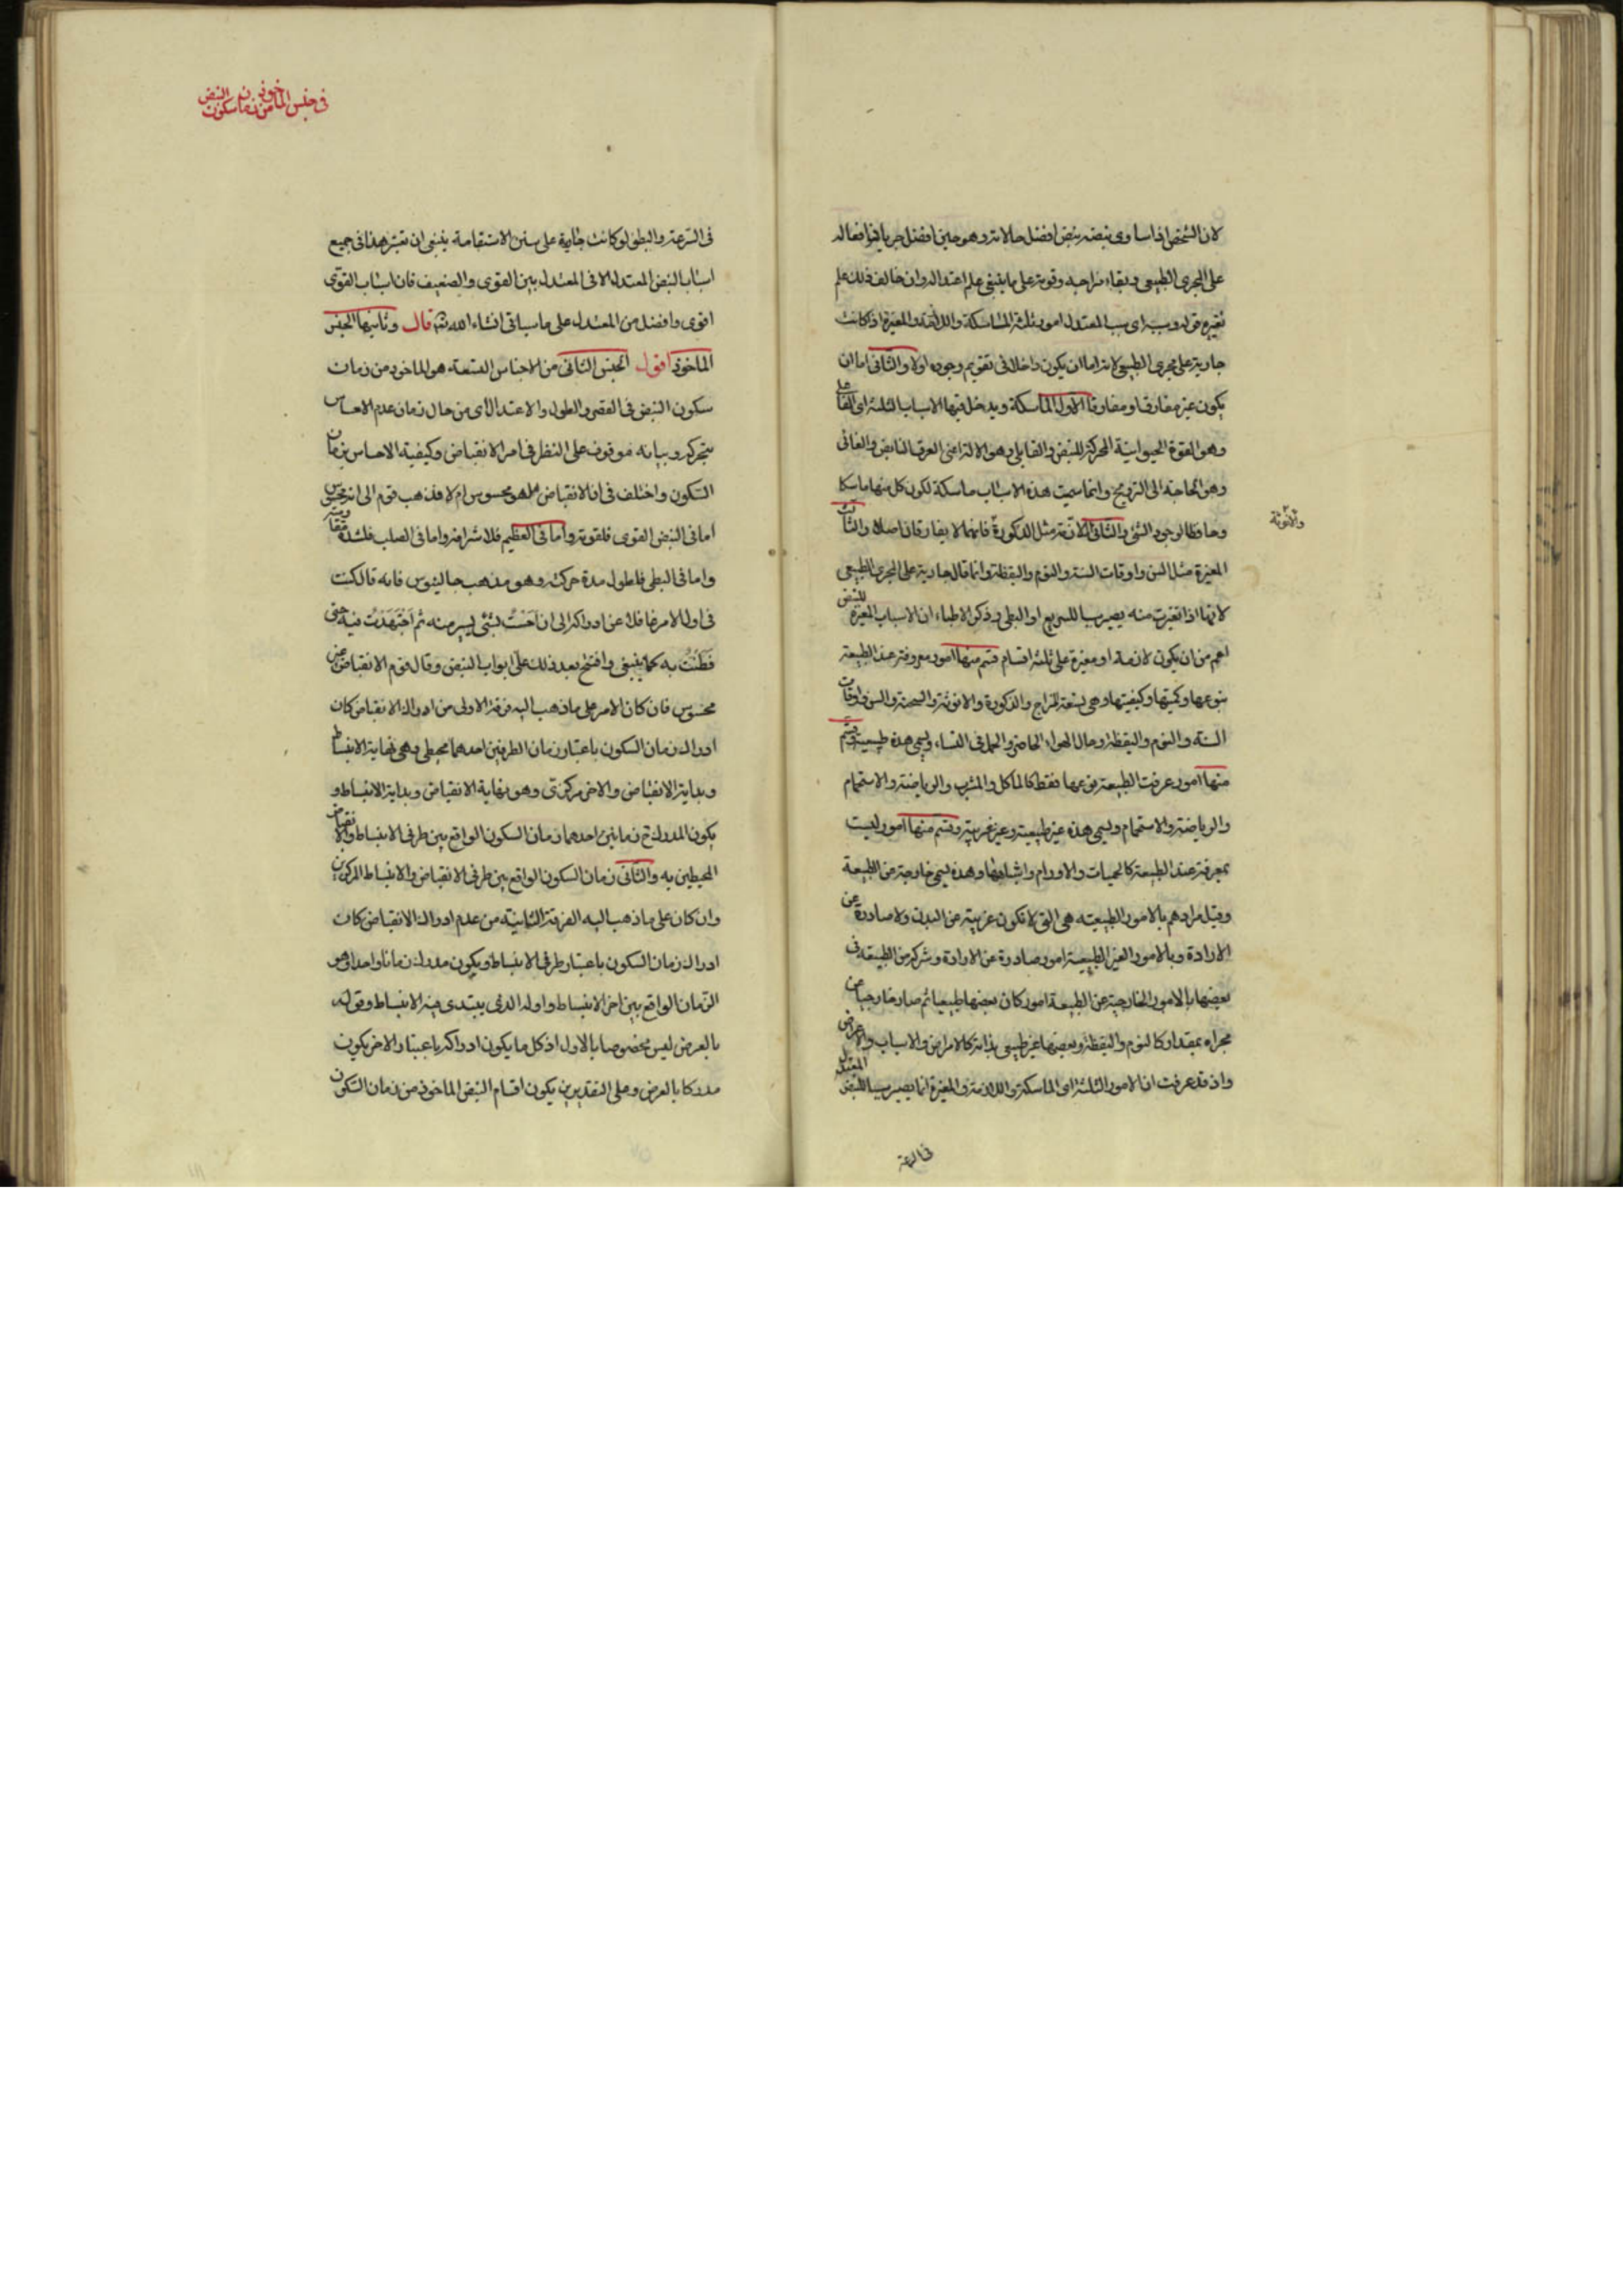 لان الشخص اذا ساوى نبضه نبض افضل حالاته وهو حين افضل جريانها افعاله
على المجرى الطبيعى وبقاء مزاجه وقوته على ما ينبغى علم اعتداله وان خالف ذلك علم
تغيره قوله وسببه اى سبب المعتدل امور ثلثة الماسكة واللازمة والمغيرة اذ كانت
جارية على مجرى الطبيعى لانه اما ان يكون داخلا فى تقويم وجوده اولا والثانى اما ان
يكون غير مفارق او مفارقا الاول الماسكة ويدخل فيها الاسباب الثلثة اى الفاعل
وهو القوة الحيوانية المحركة للنبض والقابل وهو الالة اعنى العرق النابض والغائى
وهو الحاجة الى الترويح وانما سميت هذه الاسباب ماسكة لكون كل منها ماسكا
وحافظا لوجود الشئ والثانى اللازمة مثل الذكورة فانهما لا يفارقان اصلا والثالث
والانوثة
المغيرة مثل السن واوقات السنة والنوم واليقظة وانما قال جارية على المجرى الطبيعى
لانها اذا تغيرت منه يصير سببا للسريع او البطى وذكر الاطباء ان الاسباب المغيرة للنبض
اعم من ان يكون لازمة او مغيرة على ثلثة اقسام قسم منها امور معروفة عند الطبيعة
بنوعها وكميتها وكيفيتها وهى تسعة المزاج والذكورة والانوثة والسحنة والسن واوقات
السنة والنوم واليقظة وحال الهواء الحاضر والحمل فى النساء ويسمى هذه طبيعية وقسم
منها امور عرفت الطبيعة نوعها فقط كالماكل والمشرب والرياضة والاستحمام
والرياضة والاستحمام ويسمى هذه غير طبيعية وغير غريبة وقسم منها امور ليست
بمعرفة عند الطبيعة كالحميات والاورام واشباهها وهذه يسمى خارجة عن الطبيعة
وقيل مرادهم بالامور الطبيعية هى التى لا تكون غريبة عن البدن ولا صادرة عن
الارادة وبالامور الغير الطبيعية امور صادرة عن الارادة وشركة من الطبيعة فى
بعضها بالامور الخارجة عن الطبيعة امور كان بعضها طبيعيا ثم صار خارجا عن
مجراه بمقدار كالنوم واليقظة وبعضها غير طبيعى بذاته كالامراض والاسباب والاعراض
واذ قد عرفت ان الامور الثلثة اى الماسكة واللازمة والمغيرة انما يصير سببا للنبض المعتدل
فى السرعة
فى جنس الماخوذ من زمان سكون النبض
فى السرعة والبطؤ لو كانت جارية على سنن الاستقامة ينبغى ان تعتبر هذا فى جميع
اسباب النبض المعتدل الا فى المعتدل بين القوى والضعيف فان اسباب القوى
اقوى وافضل من المعتدل على ما سياتى انشاء الله تعالى قال وثانيها الجنس
الماخوذ اقول الجنس الثانى من الاجناس التسعة هو الماخوذ من زمان
سكون النبض فى القصر والطول والاعتدال اى من حال زمان عدم الاحساس
بتحركه وبيانه موقوف على النظر فى امر الانقباض وكيفية الاحساس بزمان
السكون واختلف فى ان الانقباض هل هو محسوس ام لا فذهب قوم الى انه محسوس
اما فى النبض القوى فلقوته واما فى العظيم فلاشرافه واما فى الصلب فلشدة مقاومته
واما فى البطى فلطول مدة حركته وهو مذهب جالينوس فانه قال كنت
فى اول الامر غافلا عن ادراكه الى ان احسست بشئ يسير منه ثم اجتهدت فيه حتى
فطنت به كما ينبغى وافتتح بعد ذلك على ابواب النبض وقال قوم الانقباض غير
محسوس فان كان الامر على ما ذهب اليه فرقة الاولى من ادراك الانقباض كان
ادراك زمان السكون باعتبار زمان الطرفين احدهما محيطى وهى نهاية الانبساط
وبداية الانقباض والاخر مركزى وهو نهاية الانقباض وبداية الانبساط و
يكون المدرك ح زمانين احدهما زمان السكون الواقع بين طرفى الانبساط والانقباض
المحيطين به والثانى زمان السكون الواقع بين طرفى الانقباض والانبساط المركزين
وان كان على ما ذهب اليه الفرقة الثانية من عدم ادراك الانقباض كان
ادراك زمان السكون باعتبار طرفى الانبساط ويكون مدرك زمانا واحدا وهو
الزمان الواقع بين اخر الانبساط واوله الذى يبتدى منه الانبساط وقوله
بالعرض ليس مخصوصا بالاول اذ كل ما يكون ادراكه باعتبار الاخر يكون
مدركا بالعرض وعلى التقديرين يكون اقسام النبض الماخوذ من زمان السكون